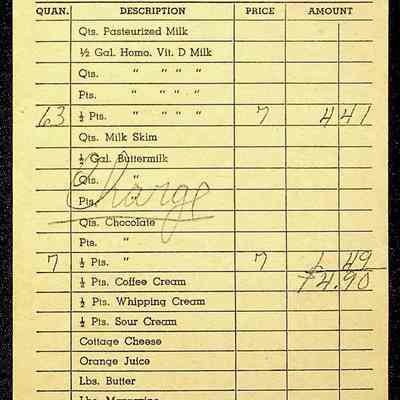 QUAN. DESCRIPTION PRICE AMOUNT
Qts. Pasteurized Milk
½ Gal. Homo. Vit. D Milk
Qts. " " " "
Pts. " " " "
63 ½ Pts. " " " " 7 4 41
Qts. Milk Skim
½ Gal. Buttermilk
Qts. "
Charge
Pts. "
Qts. Chocolate
Pts. "
7 ½ Pts. " 7 49
½ Pts. Coffee Cream 4.90
½ Pts. Whipping Cream
½ Pts. Sour Cream
Cottage Cheese
Orange Juice
Lbs. Butter
Lbs. Margarine